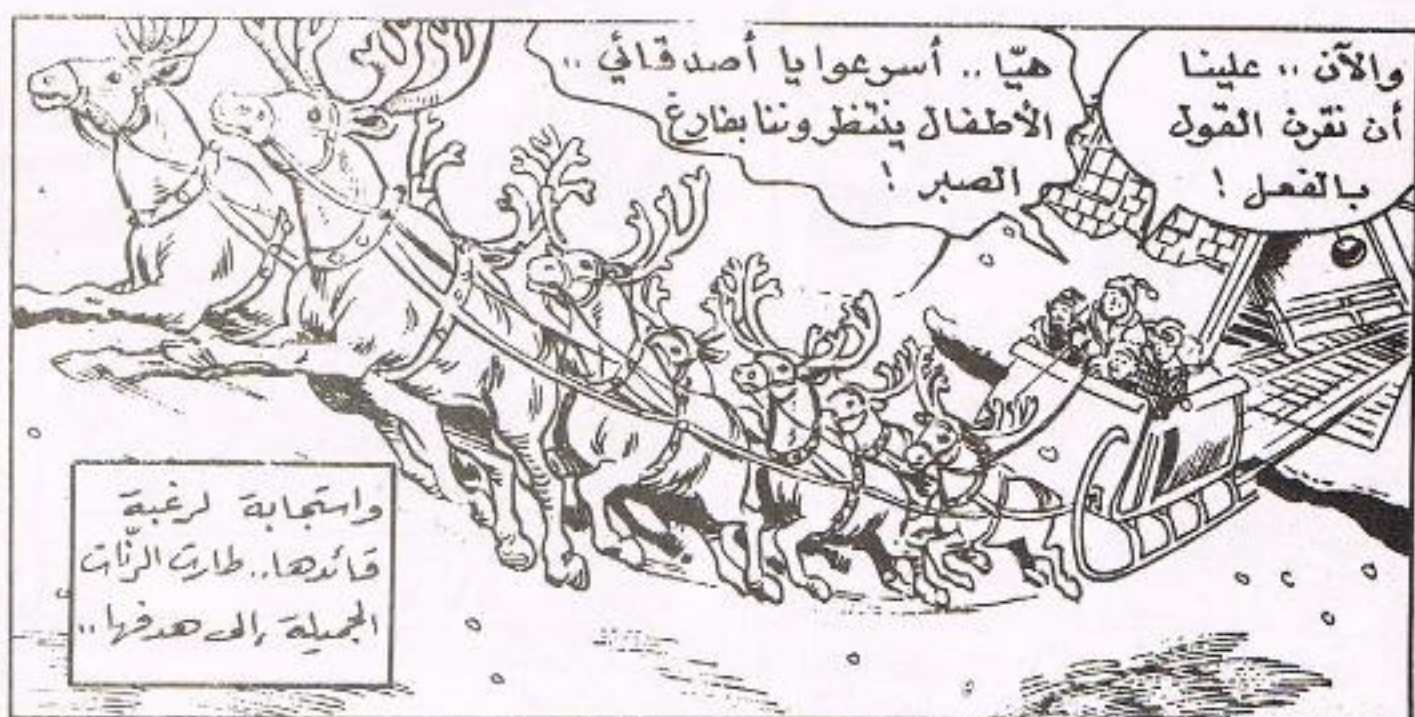 والآن .. علينا
أن نقرن القول
بالفعل !
هيّا .. أسرعوا يا أصدقائي ..
الأطفال ينتظروننا بفارغ
الصبر !
واستجابة لرغبة
قائدها .. طارت الرنّات
الجميلة إلى هدفها ..